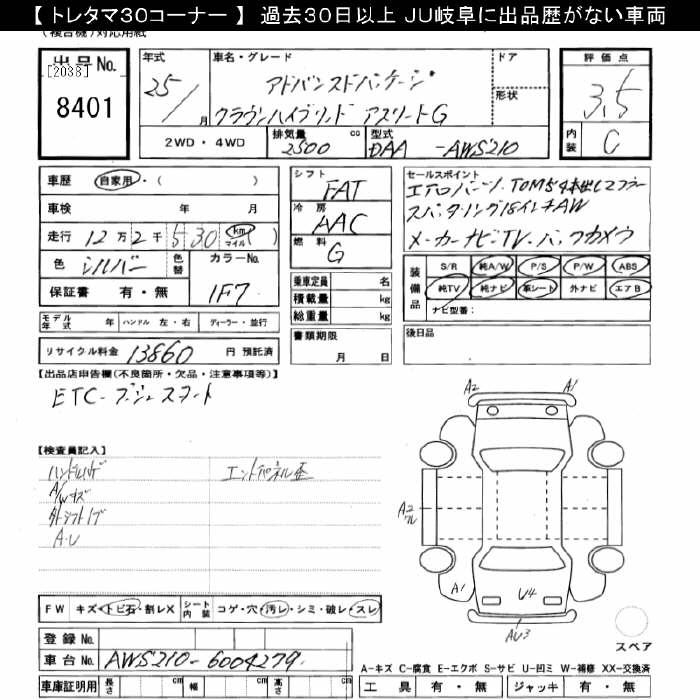 【 トレタマ30コーナー 】 過去30日以上 JU岐阜に出品歴がない車両
(複合機)対応用紙
出品No.
[2038]
8401
年式
25/
月
車名・グレード
アドバンスドパッケージ
クラウンハイブリッド アスリートG
ドア
形状
評価点
3.5
内装
C
2WD・4WD
排気量
cc
2500
型式
DAA -AWS210
車歴
自家用・( )
車検 年 月
走行 12万2千530 km マイル ( )
色 シルバー
色替
カラーNo.
1F7
保証書 有・無
シフト
FAT
冷房
AAC
燃料
G
乗車定員 名
積載量 kg
総重量 kg
セールスポイント
エアロパーツ.TOM'S4本出しマフラー
スパッタリング18インチAW
メーカーナビ・TV・バックカメラ
装備品
S/R 純A/W P/S P/W ABS
純TV 純ナビ 革シート 外ナビ エアB
ナビ型番:
モデル年式 年 ハンドル 左・右 ディーラー・並行
リサイクル料金 13860 円 預託済
書類期限
月 日
後日品
【出品店申告欄(不良箇所・欠品・注意事項等)】
ETC-プッシュスタート
【検査員記入】
ハンドルハゲ
A/Wキズ
外シフトノブ
A・U
エンドパネル歪
A2
A1
A2
フル
A1
U4
AU3
スペア
FW キズ・トビ石・割レX
シート内装 コゲ・穴・汚レ・シミ・破レ・スレ
登録No.
車台No. AWS210-6004279
車庫証明用 長さ cm 幅 cm 高さ cm
A-キズ C-腐食 E-エクボ S-サビ U-凹ミ W-補修 XX-交換済
工具 有・無 ジャッキ 有・無